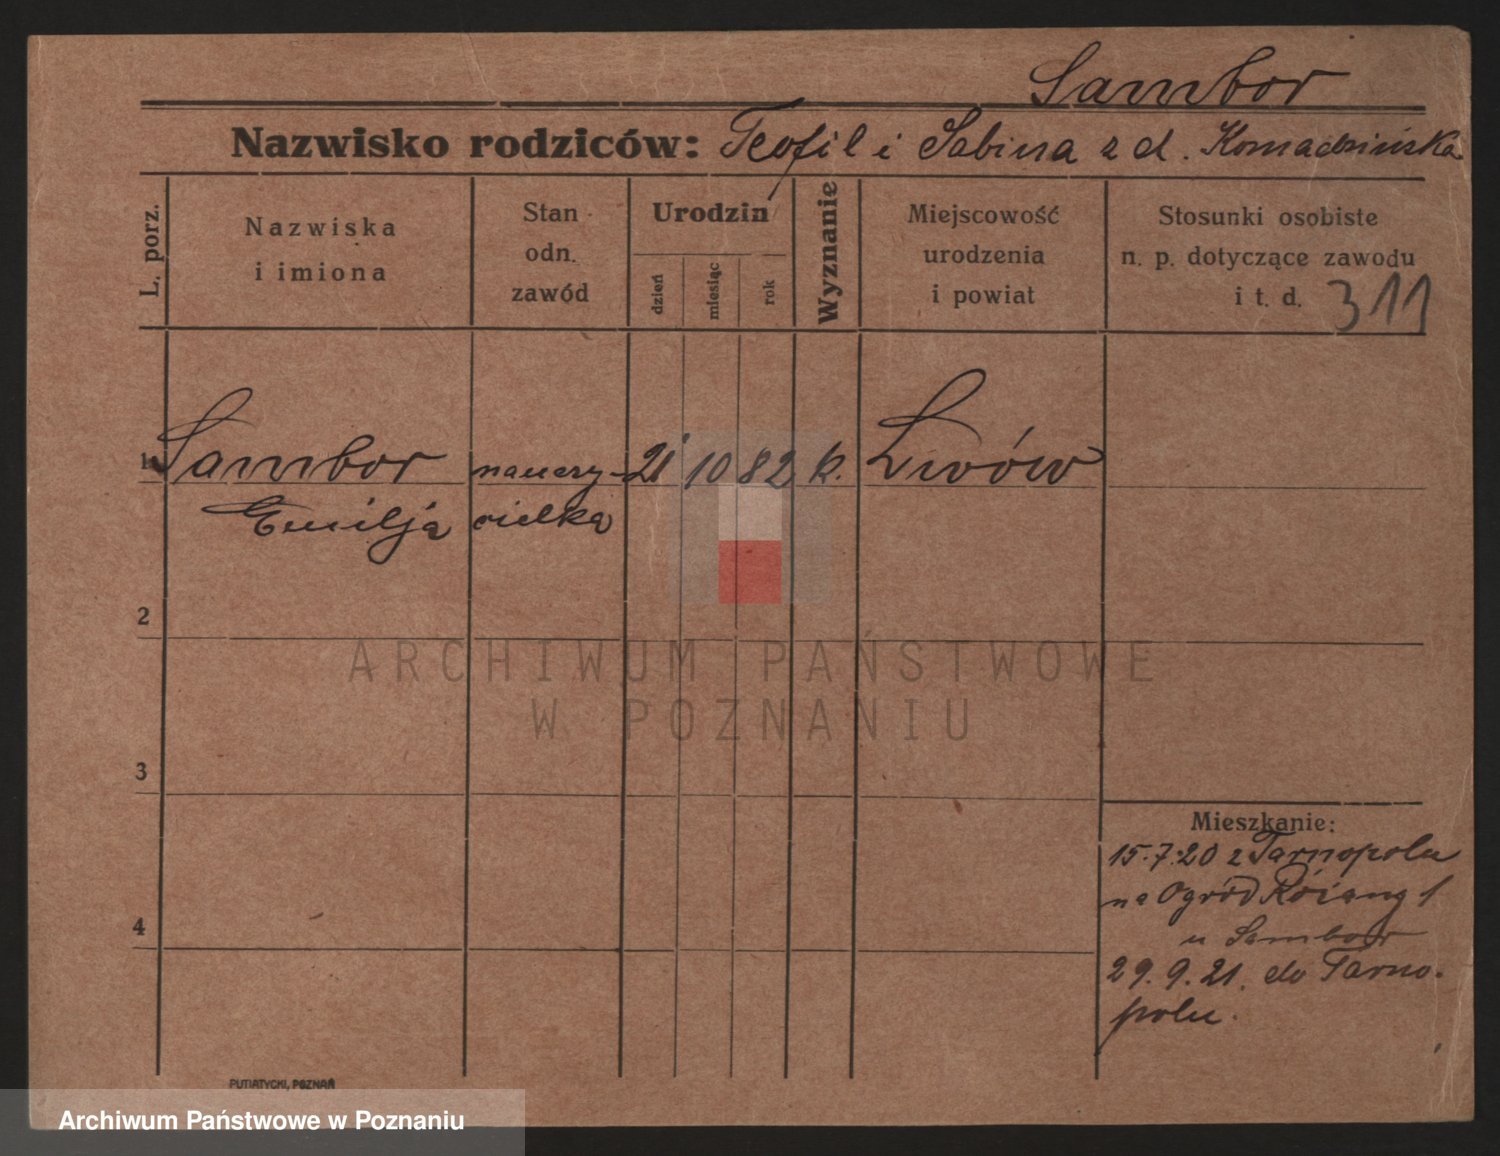 Sambor
Nazwisko rodziców: Teofil i Sabina z d. Komadzińska
L. porz.
Nazwiska
i imiona
Stan
odn.
zawód
Urodzin
dzień
miesiąc
rok
Wyznanie
Miejscowość
urodzenia
i powiat
Stosunki osobiste
n. p. dotyczące zawodu
i t. d. 311
1 Sambor nauczy- 21 10 82 k. Lwów
Emilja cielka
2
3
4
Mieszkanie:
15.7.20 z Tarnopola
na Ogród 1
u Sambor
29.9.21. do Tarno-
polu.
PUTIATYCKI, POZNAŃ
ARCHIWUM PAŃSTWOWE
W POZNANIU
Archiwum Państwowe w Poznaniu